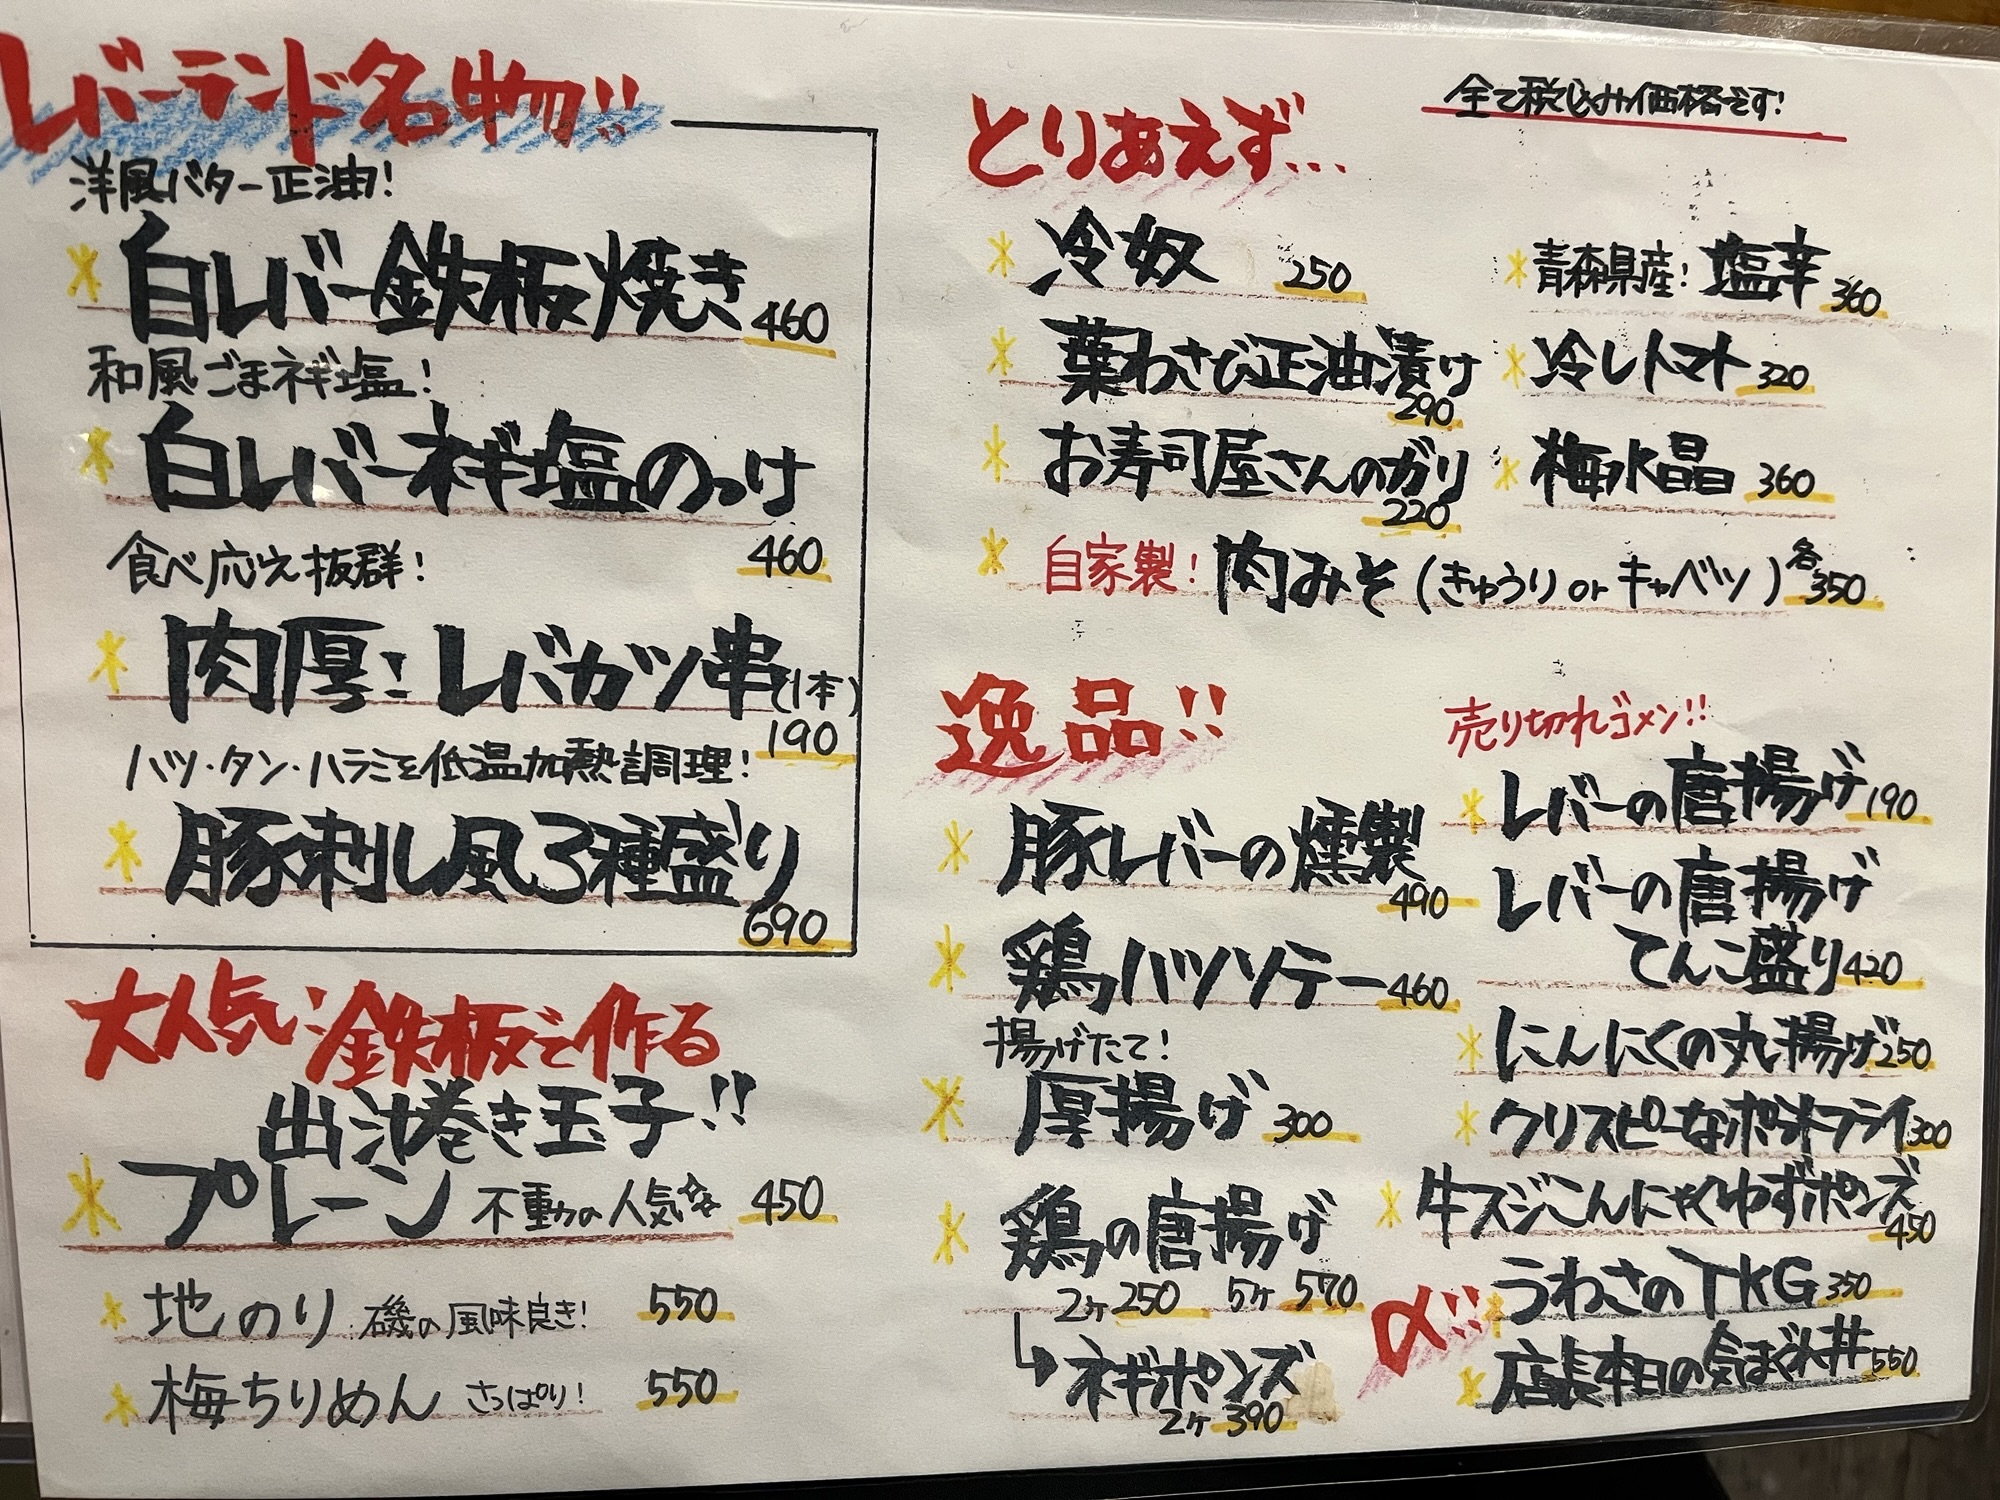 レバーランド名物!!
洋風バター正油!
白レバー鉄板焼き 460
和風ごまネギ塩!
白レバーネギ塩のっけ
460
食べ応え抜群!
肉厚!レバカツ串(1本)
190
ハツ・タン・ハラミを低温加熱調理!
豚刺し風3種盛り
690
大人気!鉄板で作る
出汁巻き玉子!!
プレーン 不動の人気☆ 450
地のり 磯の風味良き! 550
梅ちりめん さっぱり! 550
全て税込み価格です!
とりあえず...
冷奴 250
葉わさび正油漬け
290
お寿司屋さんのガリ
220
青森県産!塩辛 360
冷しトマト 320
梅水晶 360
自家製!肉みそ(きゅうり or キャベツ)各350
逸品!!
豚レバーの燻製
490
鶏ハツソテー 460
揚げたて!
厚揚げ 300
鶏の唐揚げ
2ヶ250 5ヶ570
ネギポンズ
2ヶ 390
売り切れゴメン!!
レバーの唐揚げ 190
レバーの唐揚げ
てんこ盛り 420
にんにくの丸揚げ 250
クリスピーなポテトフライ 300
牛スジこんにゃくゆずポンズ
450
〆!!
うわさのTKG 350
店長本日の気まぐれ丼 550